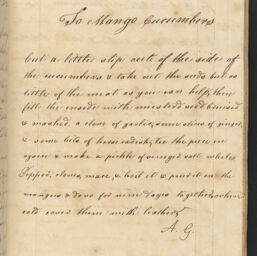 To Mango Cucumbers
Cut a little slip out of the side of
the cucumbers & take out the seeds but as
little of the meat as you can help, then
fill the inside with mustard seed bruised
& mashed, a clove of garlic, some slices of ginger,
& some bits of horse radish, tie the piece in
again & make a pickle of vinegar salt whole
Pepper, cloves, mace, & boil it & pour it on the
mangoes & do so for nine days together, when
cold cover them with leather.
A. G.